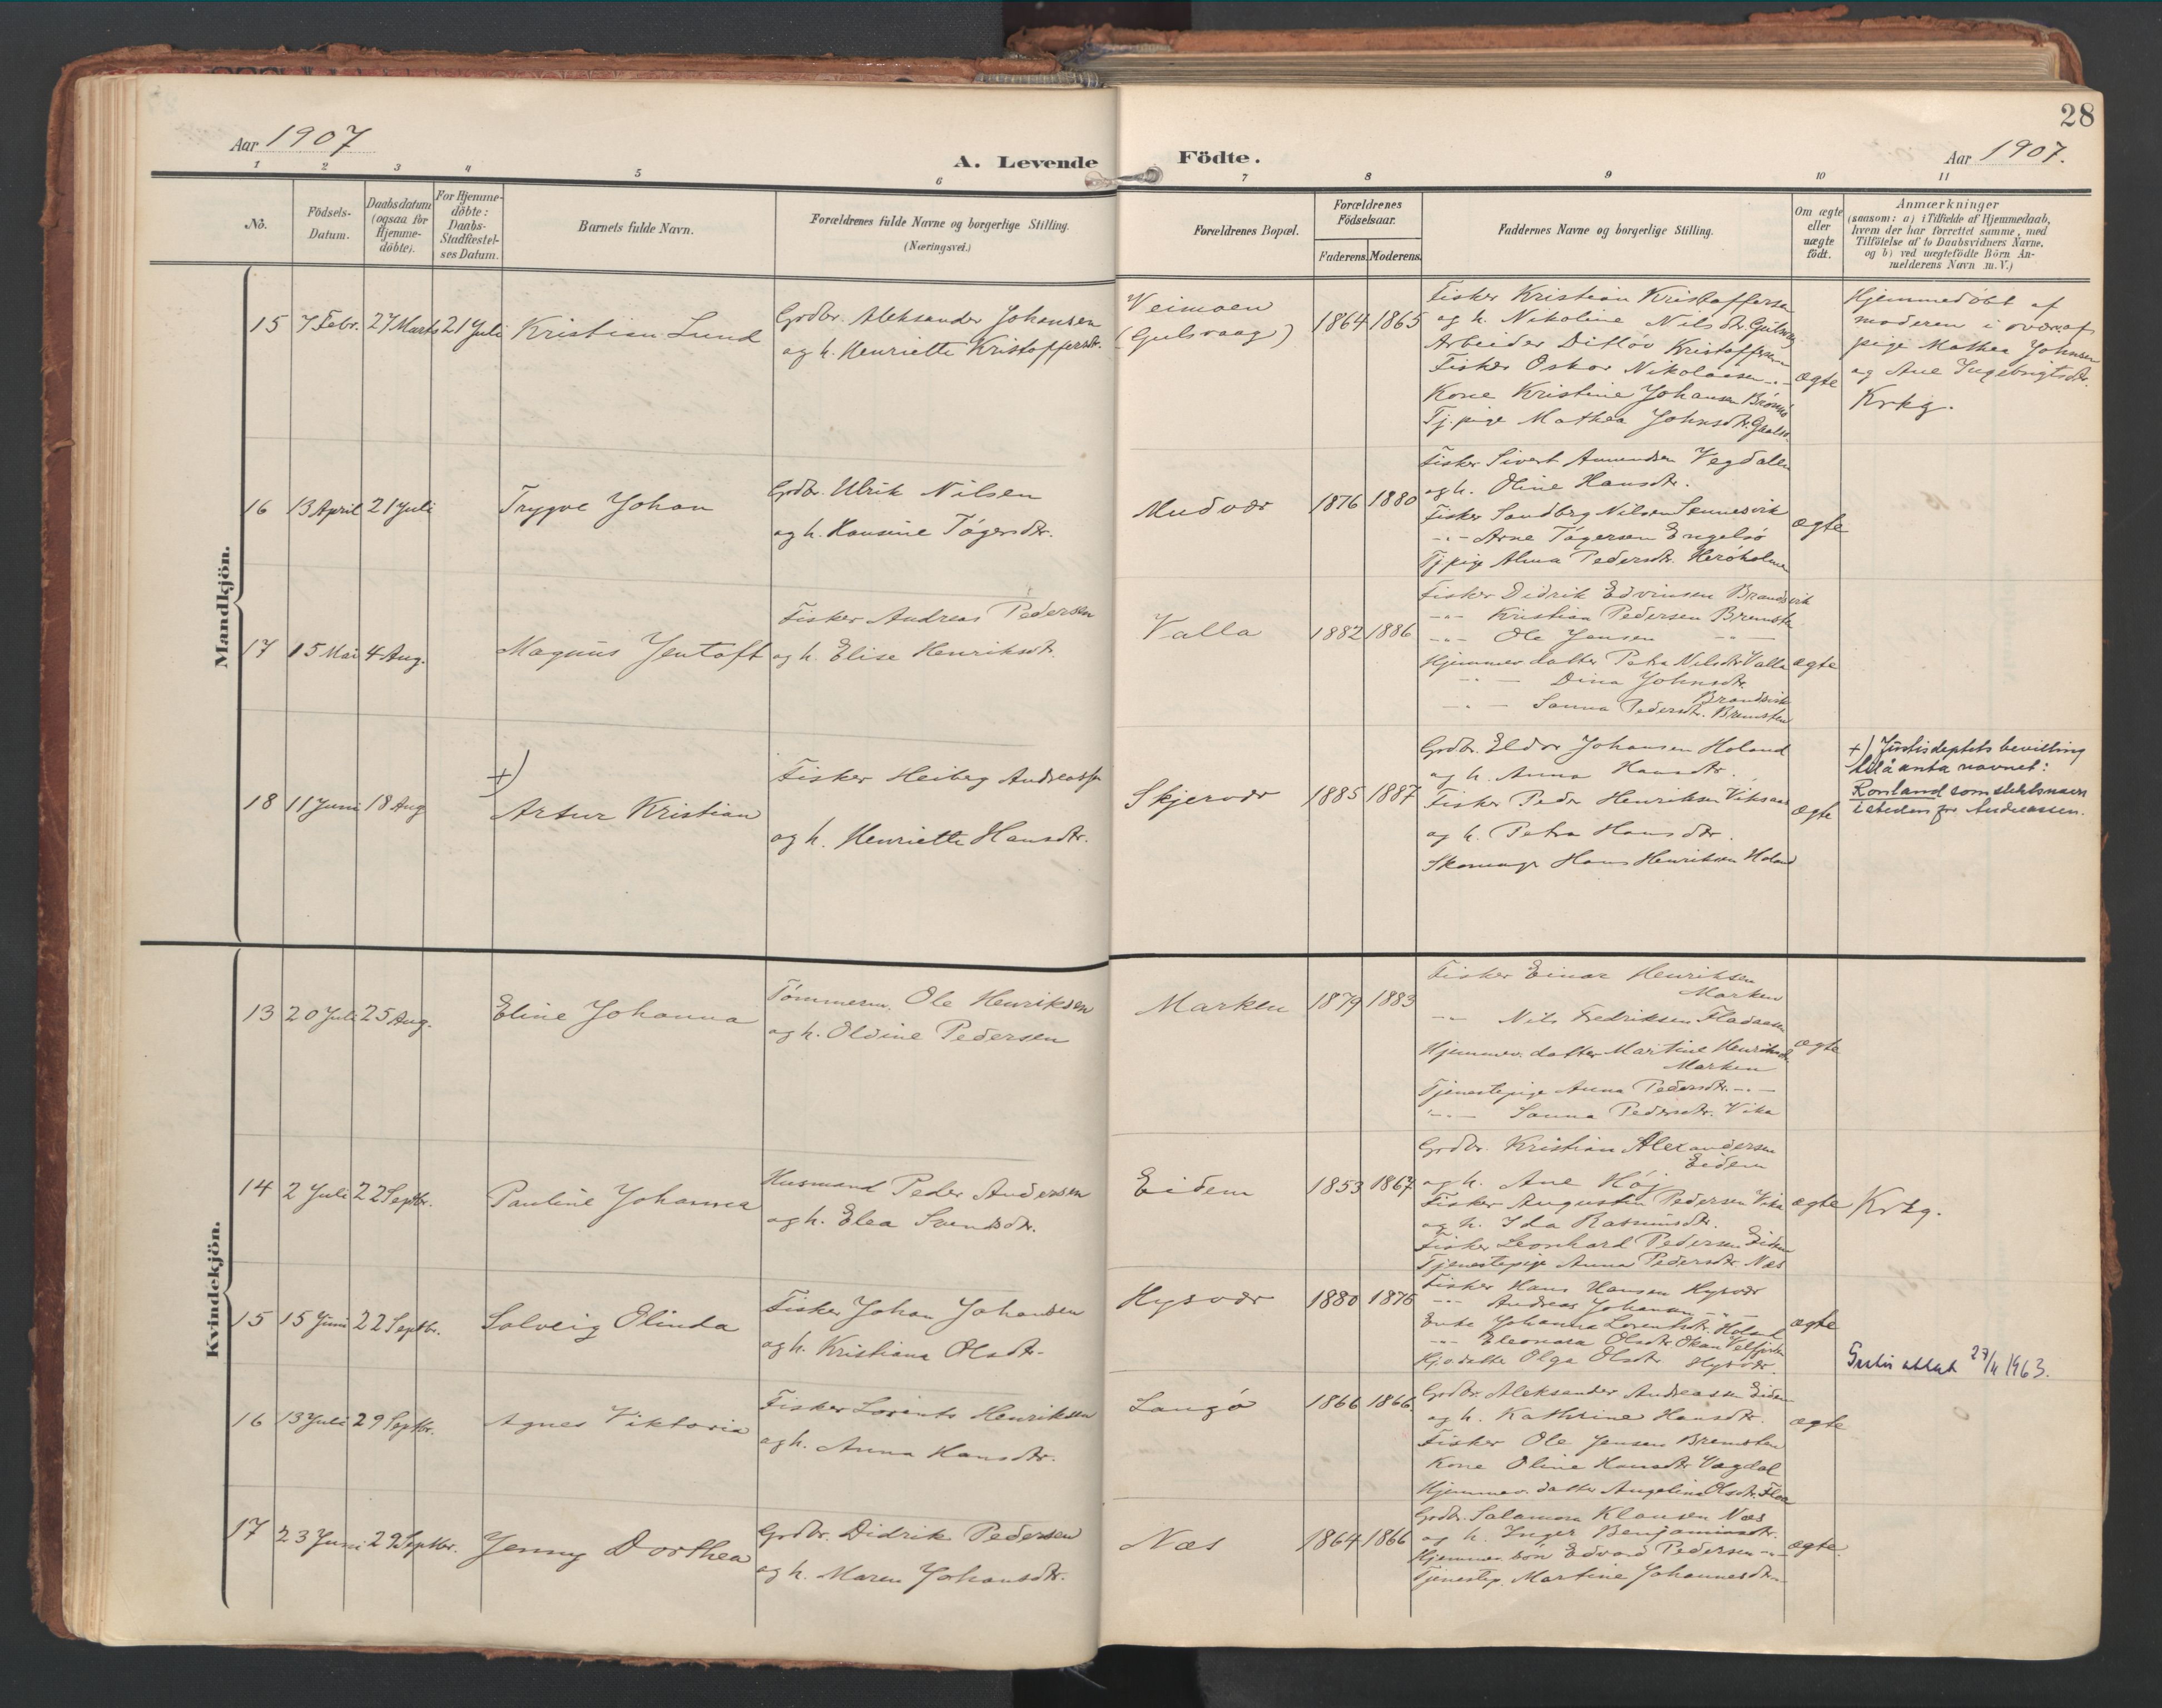 28
Aar 1907
A. Levende Födte.
Aar 1907.
1 2 3 4 5 6 7 8 9 10 11
No.
Födsels-
Datum.
Daabsdatum
(ogsaa for
Hjemme-
döbte).
For Hjemme-
döbte:
Daabs-
Stadfæstel-
ses Datum.
Barnets fulde Navn.
Forældrenes fulde Navne og borgerlige Stilling.
(Næringsvei.)
Forældrenes Bopæl.
Forældrenes
Födselsaar.
Faderens. Moderens.
Faddernes Navne og borgerlige Stilling.
Om ægte
eller
uægte
födt.
Anmærkninger
(saasom: a) i Tilfælde af Hjemmedaab,
hvem der har forrettet samme, med
Tilföielse af to Daabsvidners Navne,
og b) ved uægtefödte Börn An-
melderens Navn m. V.)
Mandkjön.
15 7 Febr. 27 Marts 21 Juli Kristian Lund
Grdbr. Aleksander Johansen
og h. Henriette Kristoffersdtr.
Veimoen
(Gulsvaag)
1864 1865
Fisker Kristian Kristoffersen
og h. Nikoline Nilsdtr.
Arbeider Ditløv Kristoffersen
Fisker Oskar Nikolaisen -"-
Kone Kristine Johansen Brønnø
Tj. pige Mathea Johnsdtr.
ægte
Hjemmedøbt af
moderen i overv. af
pige Mathea Johnsen
og Ane Ingebrigtsdtr.
Krkg.
16 13 April 21 Juli Trygve Johan
Grdbr. Ulrik Nilsen
og h. Hansine Tøgersdtr.
Mudvær
1876 1880
Fisker Sivert Amundsen Vegdalen
og h. Oline Hansdtr.
Fisker Sandberg Nilsen Sennesvik
-"- Arne Tøgersen Engelsø
Tj. pige Alma Pedersdtr. Herøholmen
ægte
17 15 Mai 4 Aug. Magnus Jentoft
Fisker Andreas Pedersen
og h. Elise Henriksdtr.
Valla
1882 1886
Fisker Didrik Edvinsen Brandsvik
-"- Kristian Pedersen Bremsten
-"- Ole Jensen -"-
Hjemmev. datter Petra Nilsdtr. Valla
-"- Dina Johnsdtr.
Brandsvik
-"- Sanna Pedersdtr. Bremsten
ægte
18 11 Juni 18 Aug
+)
Artur Kristian
Fisker Heiberg Andreassen
og h. Henriette Hansdtr.
Skjervær
1885 1887
Grdbr. Eldor Johansen Holand
og h. Anna Hansdtr.
Fisker Peder Henriksen Viksaas
og h. Petra Hansdtr.
Skomager Hans Henriksen Holand
ægte
+) Justisdeptets bevilling
til å anta navnet:
Rorsland som slektsnavn
istedenfor Andreassen.
Kvindekjön.
13 20 Juli 25 Aug. Eline Johanna
Tömmerm. Ole Henriksen
og h. Oldine Pedersen
Marken
1879 1883
Fisker Einar Henriksen
Marken
-"- Nils Fredriksen Fladaasen
Hjemmev. datter Martine Henriksdtr.
Marken
Tjenestepige Anna Pedersdtr. -"-
-"- Sanna Pedersdtr. Vika
ægte
14 2 Juli 22 Septbr. Pauline Johanna
Husmand Peder Andersen
og h. Elea Svendsdtr.
Eidem
1853 1867
Grdbr. Kristian Alexandersen
Eidem
og h. Ane Høj
Fisker Augustin Pedersen Vika
og h. Ida Rasmusdtr.
Fisker Leonhard Pedersen Eidem
Tjenestepige Anna Pedersdtr. Næs
ægte
Krkg.
15 15 Juni 22 Septbr. Solveig Olinda
Fisker Johan Johansen
og h. Kristiane Olsdtr.
Hysvær
1880 1876
Fisker Hans Hansen Hysvær
-"- Andreas Johansen -"-
Enke Johanna Lorentsdtr. Holand
-"- Eleonora Olsdtr. Velfjorden
Hj.v. datter Olga Olsdtr. Hysvær
ægte
attest 27/11 1963.
16 13 Juli 29 Septbr. Agnes Viktoria
Fisker Lorents Henriksen
og h. Anna Hansdtr.
Langø
1866 1866
Grdbr. Aleksander Andreassen Eidem
og h. Kathrine Hansdtr.
Fisker Ole Jensen Bremsten
Kone Oline Hansdtr. Vegdal
Hjemmev. datter Angeline Olsdtr. Floa
ægte
17 23 Juni 29 Septbr. Jenny Dorthea
Grdbr. Didrik Pedersen
og h. Maren Johansdtr.
Næs
1864 1866
Grdbr. Salamon Klausen Næs
og h. Inger Benjaminsdtr.
Hjemmev. søn Edvard Pedersen -"-
Tjenestep. Martine Johannesdtr. -"-
ægte.